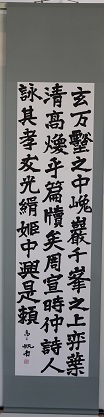 玄万壑之中峗巖千峯之上弈葉
清高煥乎篇牘矣周宣時仲詩人
詠其孝友光緝姬中興是賴